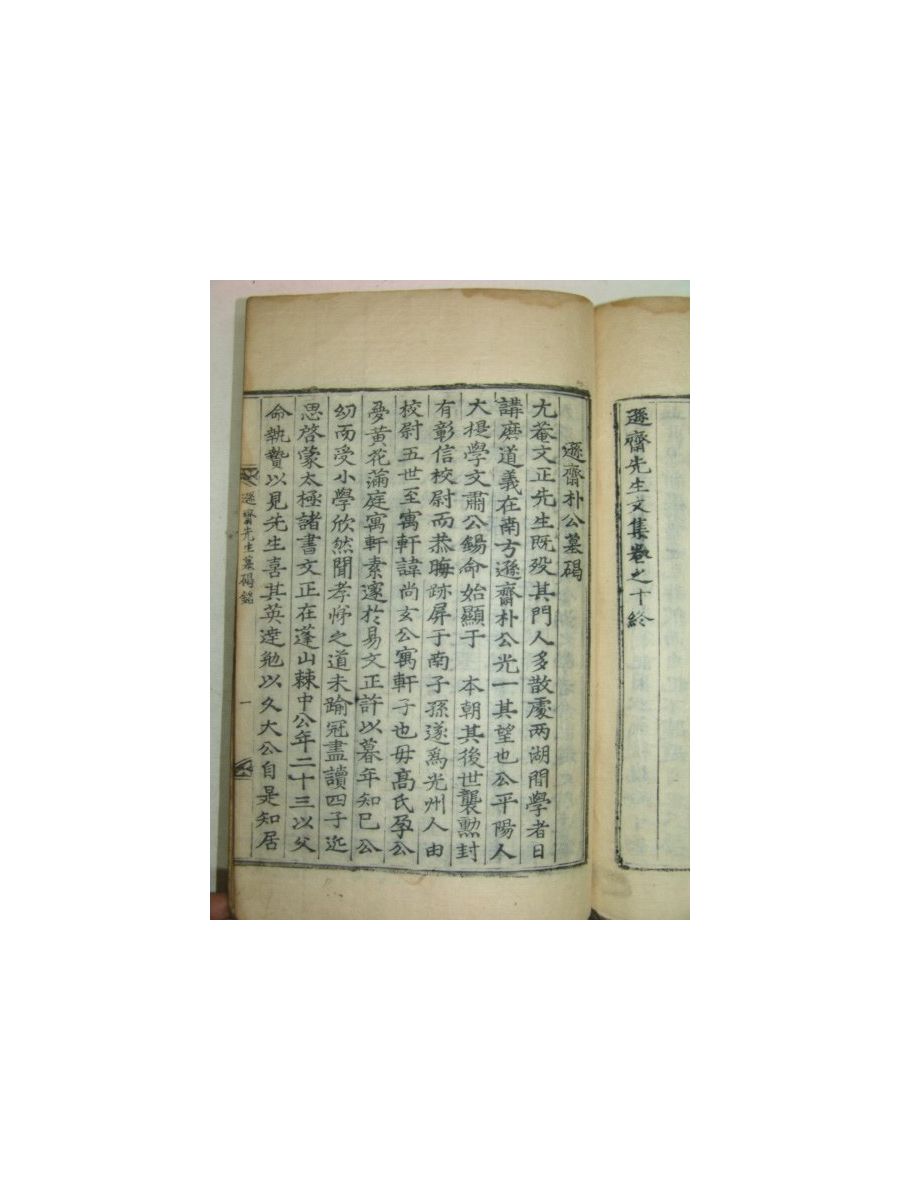 遜齋先生文集卷之十終
遜齋朴公墓碣
尤菴文正先生既歿其門人多散處两湖間學者日
講磨道義在南方遜齋朴公光一其望也公平陽人
大提學文肅公錫命始顯于 本朝其後世襲勳封
有彰信校尉而恭晦跡屏于南子孫遂爲光州人由
校尉五世至寓軒諱尚玄公寓軒子也母高氏孕公
夢黄花滿庭寓軒素邃於易文正許以暮年知已公
幼而受小學欣然聞孝悌之道未踰冠盡讀四子近
思啓蒙太極諸書文正在蓬山棘中公年二十三以父
命執贄以見先生喜其英達勉以久大公自是知居
遜齋先生墓碣銘 一